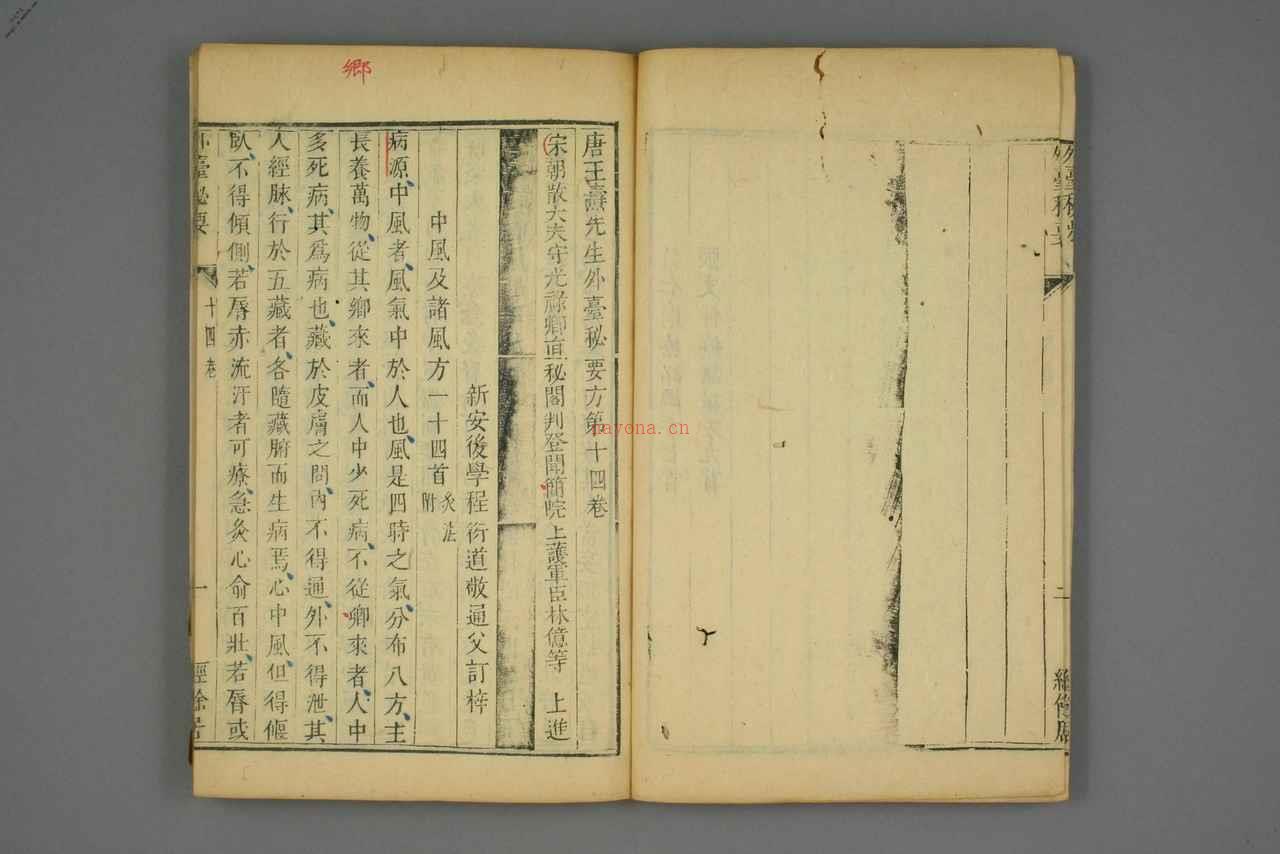 鄉
外臺秘要
二
經餘居
唐王燾先生外臺秘要方第十四卷
宋朝散大夫守光祿卿直秘閣判登聞簡院上護軍臣林億等上進
新安後學程衍道敬通父訂梓
中風及諸風方一十四首灸法附
病源中風者風氣中於人也風是四時之氣分布八方主
長養萬物從其鄉來者而人中少死病不從卿來者人中
多死病其爲病也藏於皮膚之間內不得通外不得泄其
人經脉行於五藏者各隨藏腑而生病焉心中風但得偃
臥不得傾側若脣赤流汗者可療急灸心俞百壯若脣或
外臺秘要
十四卷
一
經餘居
nayona.cn